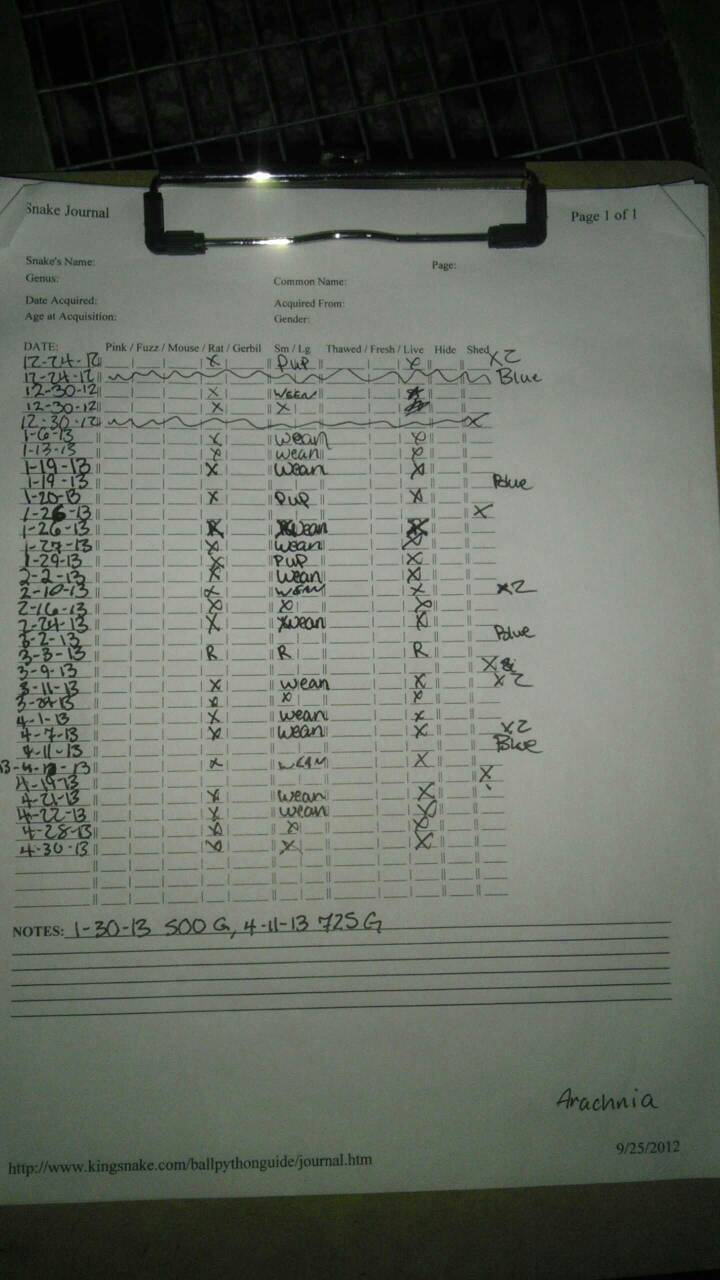 Snake Journal Page 1 of 1
Snake's Name: Page:
Genus: Common Name:
Date Acquired: Acquired From:
Age at Acquisition: Gender:
DATE: Pink / Fuzz / Mouse / Rat / Gerbil Sm / Lg Thawed / Fresh / Live Hide Shed
12-24-12 X Pup X X2
12-24-12 Blue
12-30-12 X wean X
12-30-12 X X
12-30-12 X
1-6-13 X wean X
1-13-13 X wean X
1-19-13 X wean X
1-19-13 Blue
1-20-13 X Pup X
1-26-13 X
1-26-13 wean
1-27-13 X wean X
1-29-13 X PUP X
2-2-13 X wean X
2-10-13 X wean X X2
2-16-13 X X X
2-24-13 X wean X
3-2-13 Blue
3-3-13 R R R
3-9-13 X
3-11-13 X wean X X2
3-24-13 X X X
4-1-13 X wean X
4-7-13 X wean X X2
4-11-13 Blue
13 X wean X
4-19-13 X
4-21-13 X wean X
4-22-13 X wean X
4-28-13 X X X
4-30-13 X X X
NOTES: 1-30-13 500 G, 4-11-13 725 G
Arachnia
http://www.kingsnake.com/ballpythonguide/journal.htm 9/25/2012